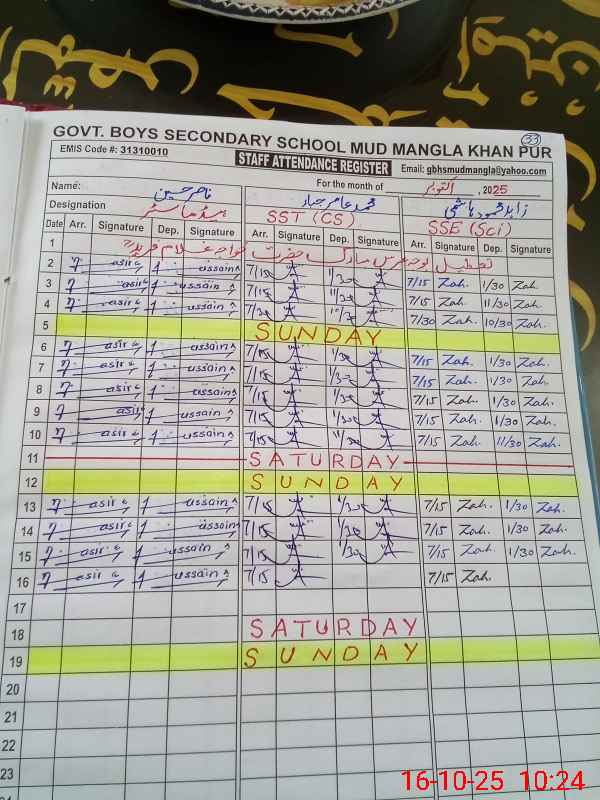 33
GOVT. BOYS SECONDARY SCHOOL MUD MANGLA KHAN PUR
EMIS Code #: 31310010 STAFF ATTENDANCE REGISTER Email: gbhsmudmangla@yahoo.com
Name: ناصر حسین For the month of اکتوبر, 2025
محمد عامر جبار زاہد محمود ہاشمی
Designation ہیڈ ماسٹر SST (CS) SSE (Sci)
Date Arr. Signature Dep. Signature Arr. Signature Dep. Signature Arr. Signature Dep. Signature
1 تعطیل بوجہ عرس مبارک حضرت خواجہ غلام فرید
2 7 asir 1 ussain 7/15 1/30 7/15 Zah. 1/30 Zah.
3 7 asir 1 ussain 7/15 11/30 7/15 Zah. 11/30 Zah.
4 7 asir 1 ussain 7/30 7/30 Zah. 10/30 Zah.
5 SUNDAY
6 7 asir 1 ussain 7/15 1/30 7/15 Zah. 1/30 Zah.
7 7 asir 1 ussain 7/15 1/30 7/15 Zah. 1/30 Zah.
8 7 asir 1 ussain 7/15 1/30 7/15 Zah. 1/30 Zah.
9 7 asir 1 ussain 7/15 1/30 7/15 Zah. 1/30 Zah.
10 7 asir 1 ussain 7/15 11/30 7/15 Zah. 11/30 Zah.
11 SATURDAY
12 SUNDAY
13 7 asir 1 ussain 7/15 1/30 7/15 Zah. 1/30 Zah.
14 7 asir 1 ussain 7/15 1/30 7/15 Zah. 1/30 Zah.
15 7 asir 1 ussain 7/15 1/30 7/15 Zah. 1/30 Zah.
16 7 asir 1 ussain 7/15 7/15 Zah.
17
18 SATURDAY
19 SUNDAY
20
21
22
23
16-10-25 10:24